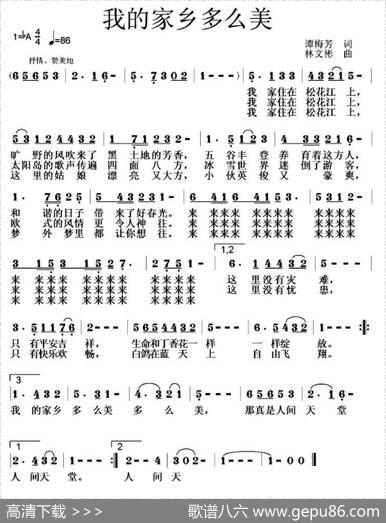 我的家乡多么美
1=♭A 4/4 ♩=86
谭梅芳 词
抒情、赞美地
林文彬 曲
我 家住在 松花江 上,
我 家住在 松花江 上,
我 家住在 松花江 上,
旷 野的风吹来了 黑 土地的芳香, 五 谷丰 登 养 育着这方人,
太阳岛的歌声传遍 四 面 八 方, 冰 雪世 界 迷 倒了游 客,
这 里的姑 娘 漂 亮 又大方, 小 伙英 俊 又 豪 爽,
和 谐的日子 带 来了好春光。 来 来来来 来来来来 来来来来
欧 式的风情 令 人神 往。 来 来来来 来来来来 来来来来
梦 外 梦里都 让你想 往。 来 来来来 来来来来 来来来来
1,2
来 来来来 来 来来来 来 来来 来 这 里没有灾 难,
来 来来来 来 来来来 来 来来 来 这 里没有忧 愁,
来 来来来 来 来来来 来 来来 来
只 有平安吉 祥, 生命和丁香花一样 一 样绽 放。
只 有快乐欢 畅, 白鸽在蓝 天上 自 由飞 翔。
3
我 的家乡 多 么美 多 么 美, 那真是人间 天 堂
1.
2
人 间天 堂。 人 间 天
高清下载 >>>
歌谱八六 www.gepu86.com